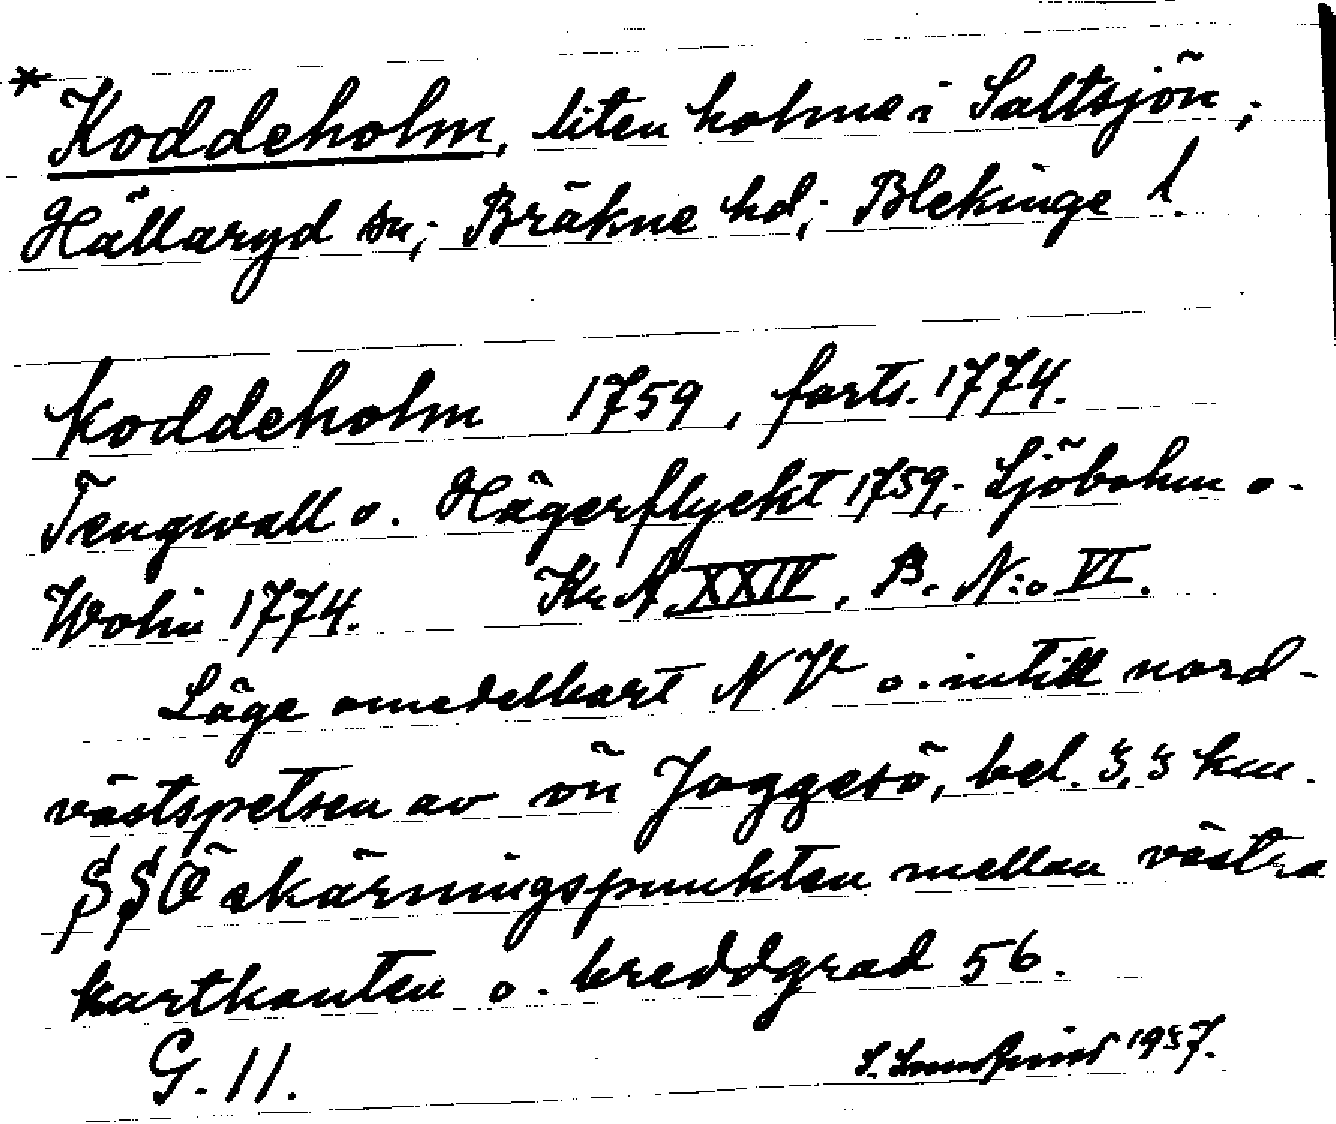 * Koddeholm, liten holme i Saltsjön;
Hällaryd sn; Bräkne hd; Blekinge l.
Koddeholm 1759, forts. 1774.
Tengwall o. Hägerflyckt 1759; Sjöbohm o.
Wolin 1774. Kr. A. XXIV, B. N:o VI.
Läge omedelbart NV o. intill nord-
västspetsen av ön Joggesö, bel. 3,3 km.
SSÖ skärningspunkten mellan västra
kartkanten o. breddgrad 56.
G. 11. S. 1937.